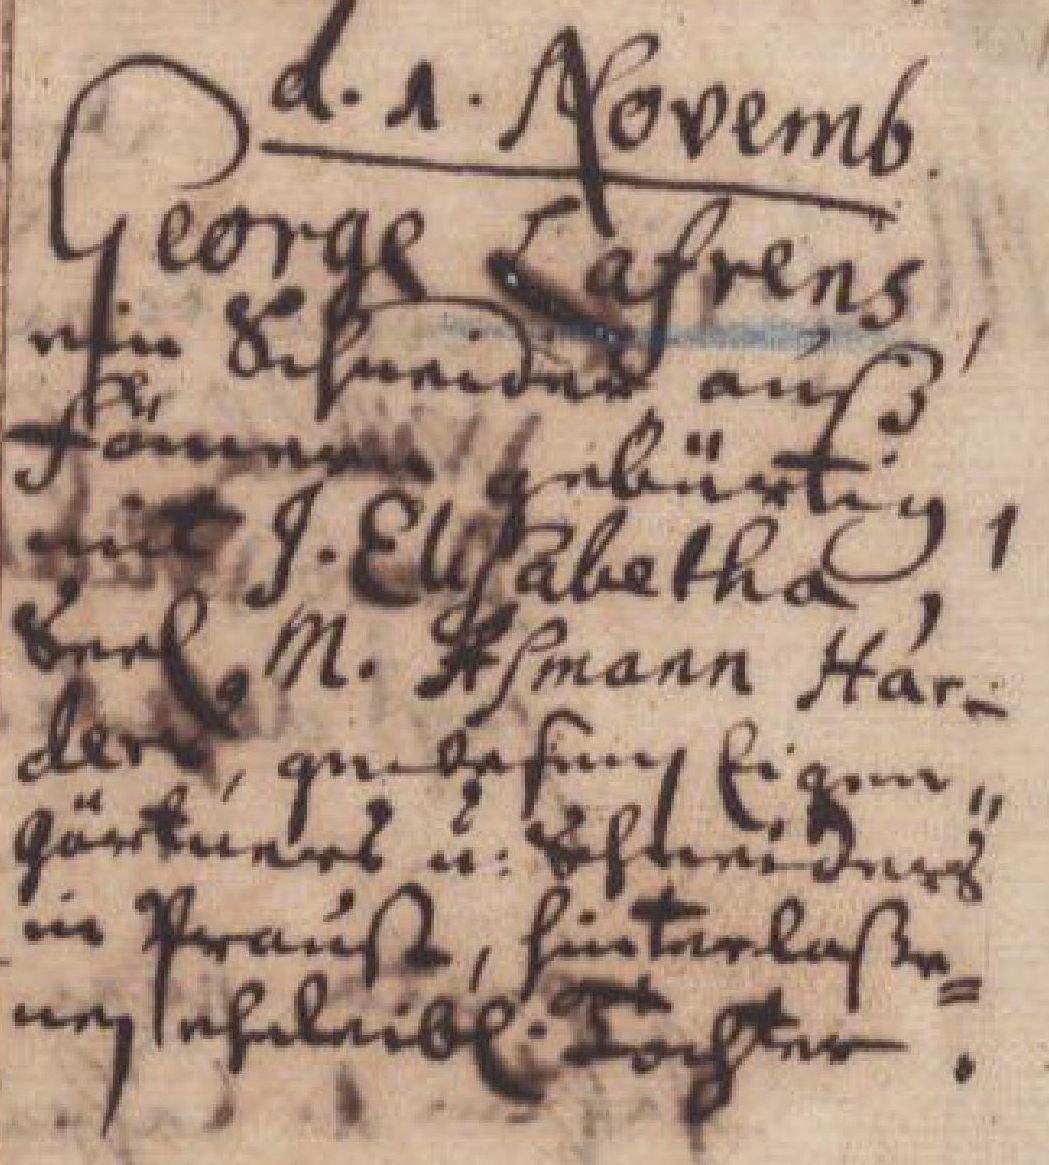 d. 1. Novemb.
George Lafrens,
ein Schneider auß
gebürtig,
mit J. Elisabetha,
Seel. M. Aßmann Har-
ders, gewesenen Eigen-
gärtners u. Schneiders
in Praust, hinterlaße=
nen eheleibl. Tochter.